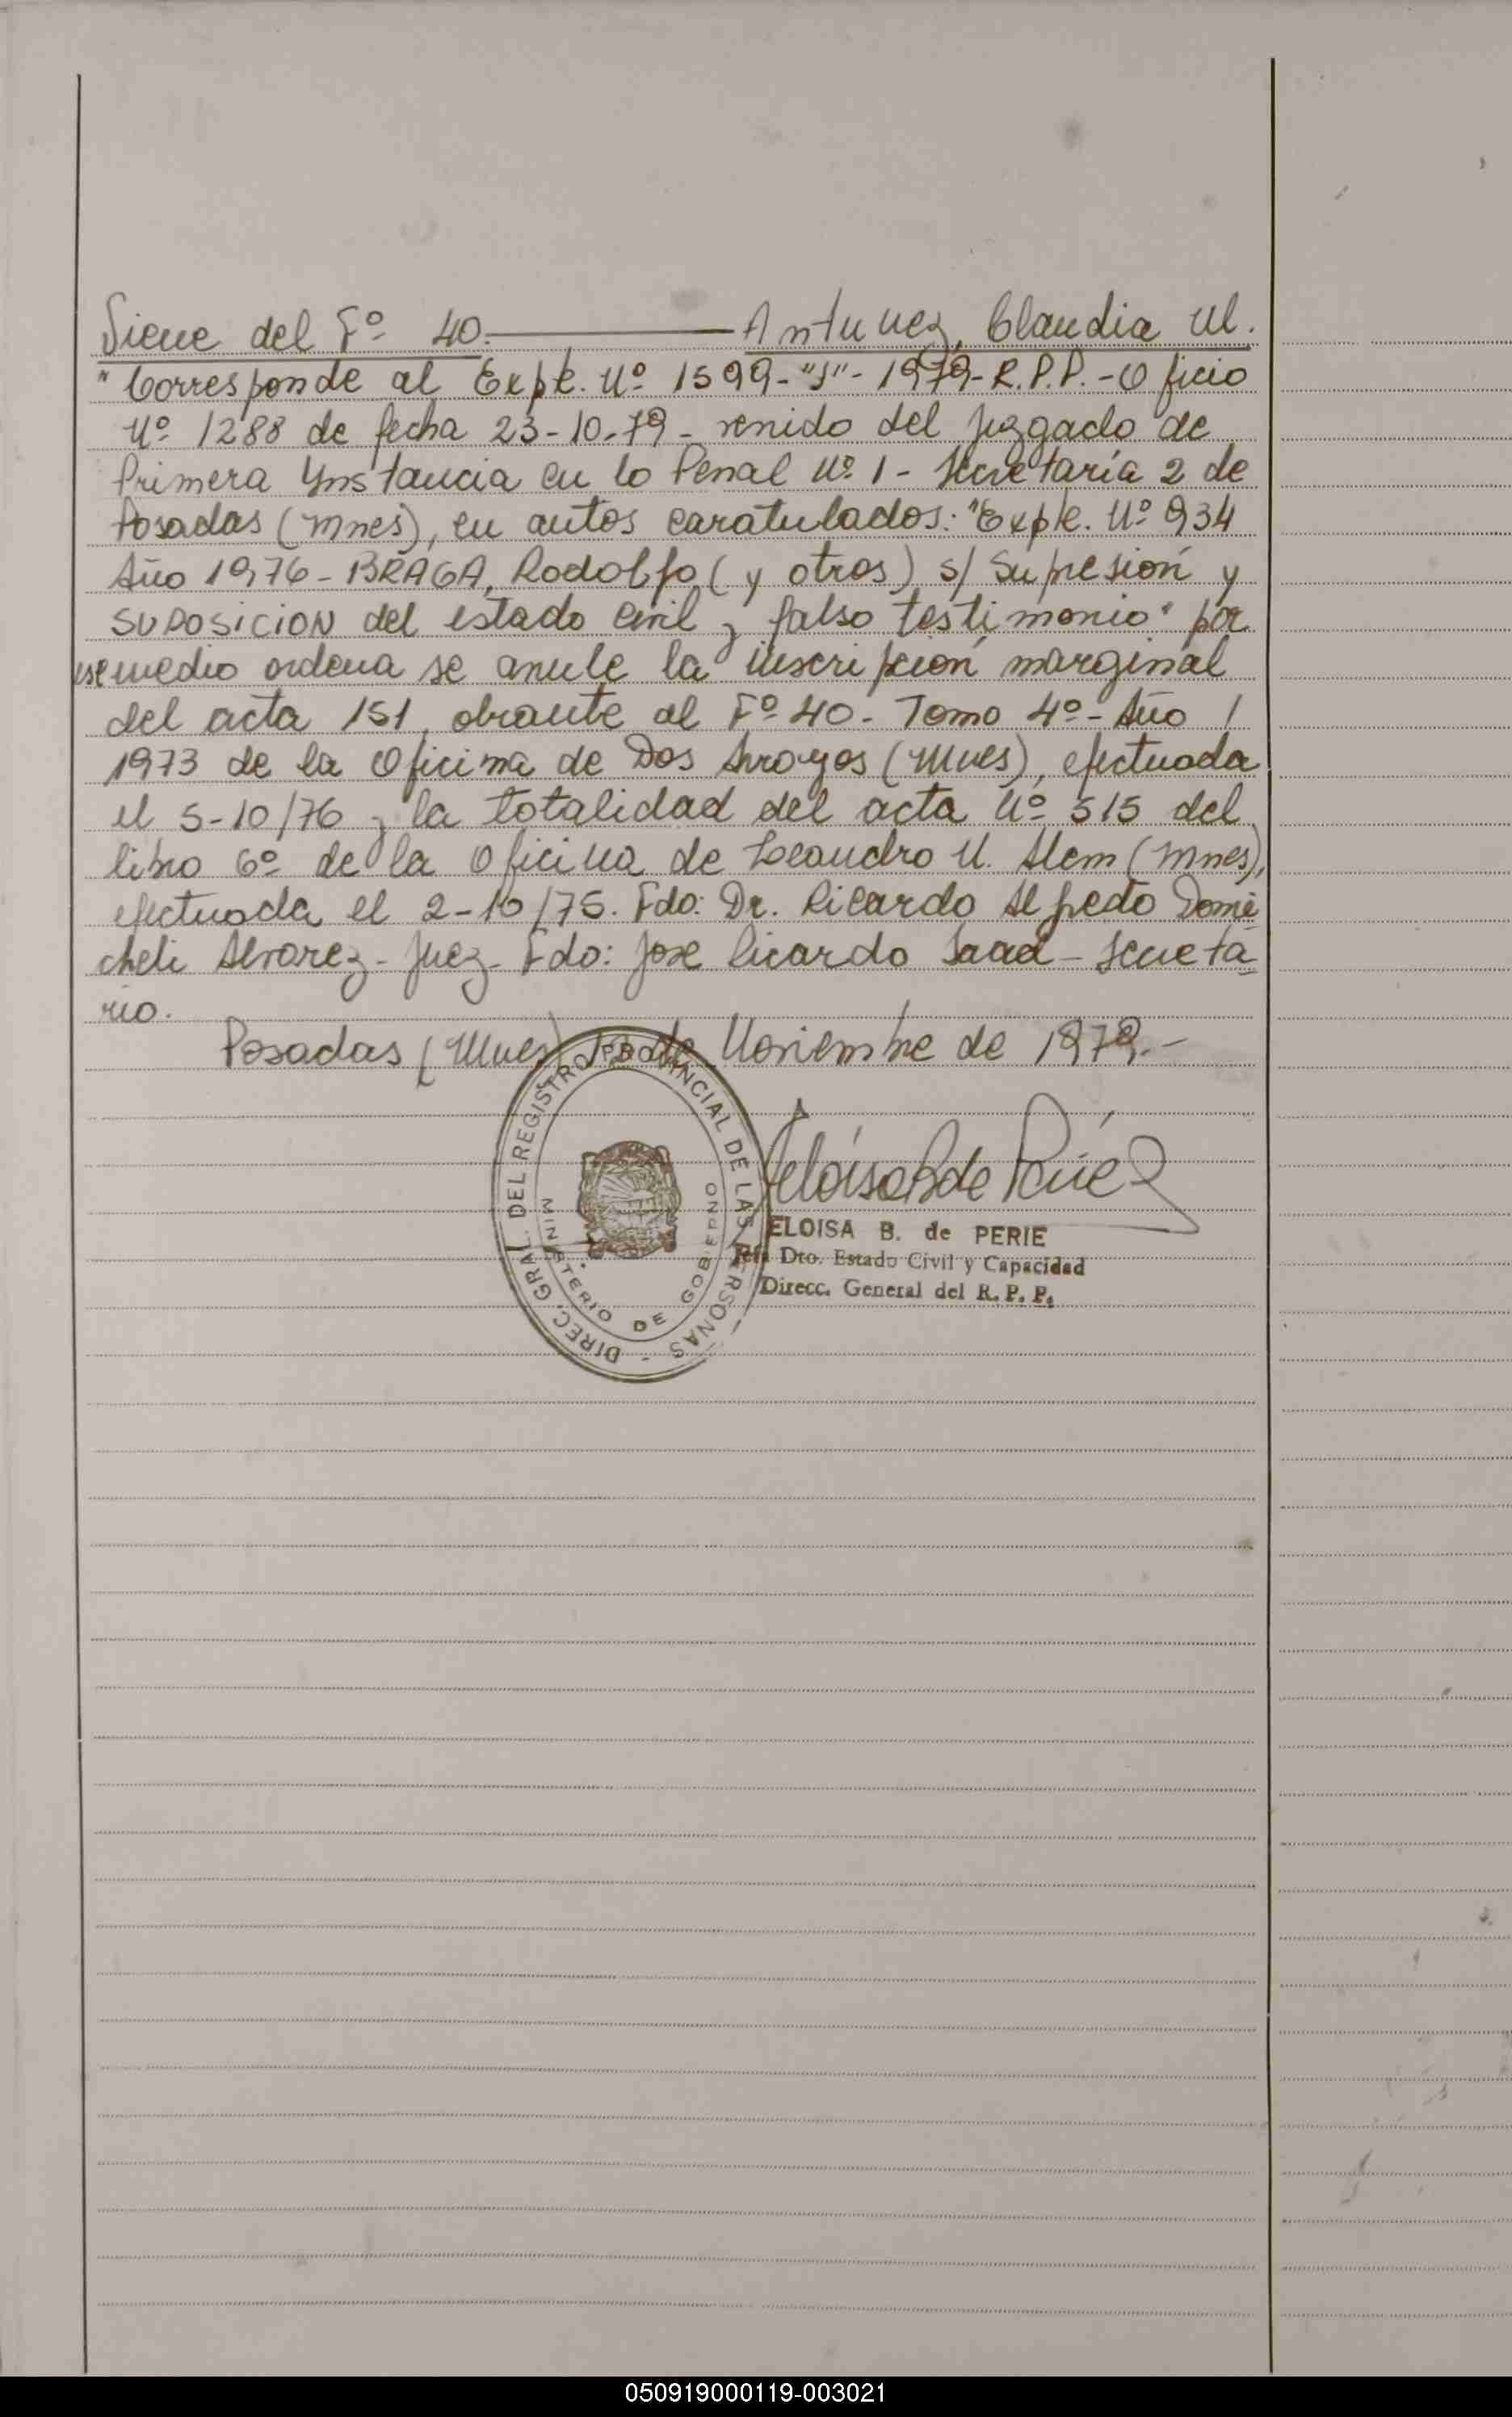 Viene del Fº 40. Antunez, Claudia M.
"Corresponde al Expte. Nº 1599-"J"-1979-R.P.P.-Oficio
Nº 1288 de fecha 23-10-79- venido del Juzgado de
Primera Ynstancia en lo Penal Nº 1 - Secretaría 2 de
Posadas (Mnes), en autos caratulados: "Expte. Nº 934
Año 1976 - BRAGA, Rodolfo (y otros) s/ Supresión y
SUPOSICION del estado civil y falso testimonio" por
ese medio ordena se anule la inscripción marginal
del acta 151, obrante al Fº 40 - Tomo 4º - Año
1973 de la Oficina de Dos Arroyos (Mnes), efectuada
el 5-10/76 y la totalidad del acta Nº 515 del
libro 6º de la Oficina de Leandro N. Alem (Mnes),
efectuada el 2-10/75. Fdo: Dr. Ricardo Alfredo Domi
cheli Alvarez - Juez - Fdo: Jose Ricardo Saad - Secreta
rio.
Posadas (Mnes) de Noviembre de 1979.-
DIREC. GRAL. DEL REGISTRO PROVINCIAL DE LAS PERSONAS -
MINISTERIO DE GOBIERNO
Eloisa B de Perié
ELOISA B. de PERIE
Jefa Dto. Estado Civil y Capacidad
Direcc. General del R. P. P.
050919000119-003021